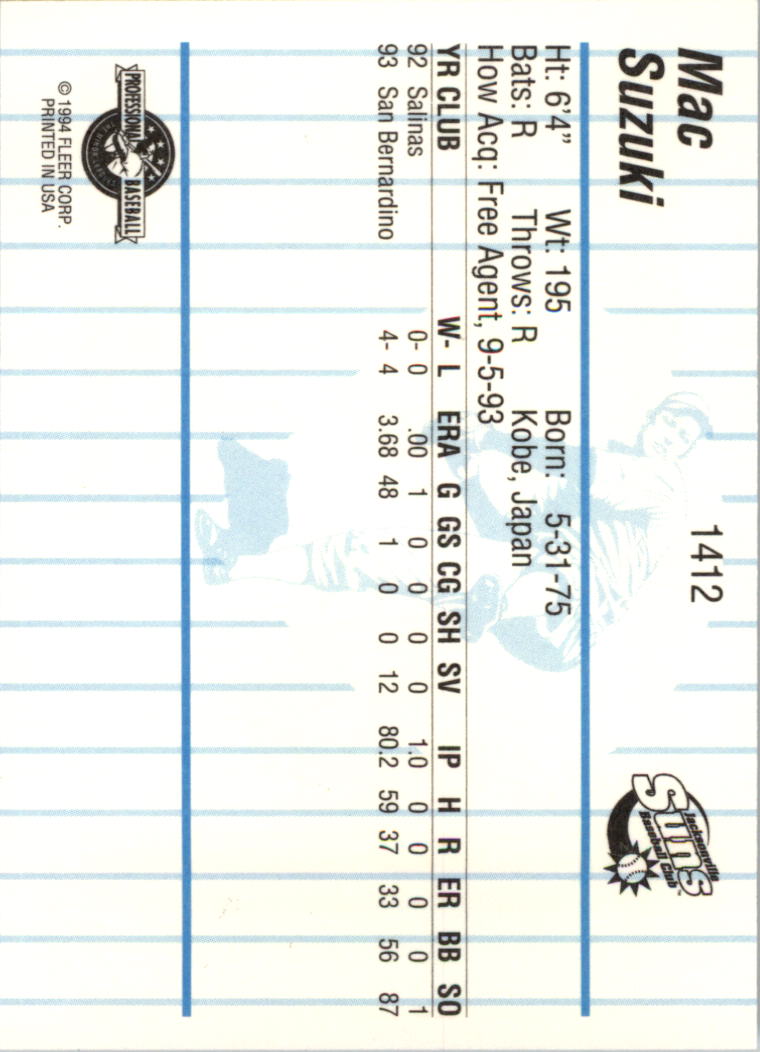 Mac
Suzuki
1412
Jacksonville
Suns
Baseball Club™
Ht: 6'4" Wt: 195 Born: 5-31-75
Bats: R Throws: R Kobe, Japan
How Acq: Free Agent, 9-5-93
YR CLUB W- L ERA G GS CG SH SV IP H R ER BB SO
92 Salinas 0- 0 .00 1 0 0 0 0 1.0 0 0 0 0 1
93 San Bernardino 4- 4 3.68 48 1 0 0 12 80.2 59 37 33 56 87
PROFESSIONAL BASEBALL
© 1994 FLEER CORP.
PRINTED IN USA